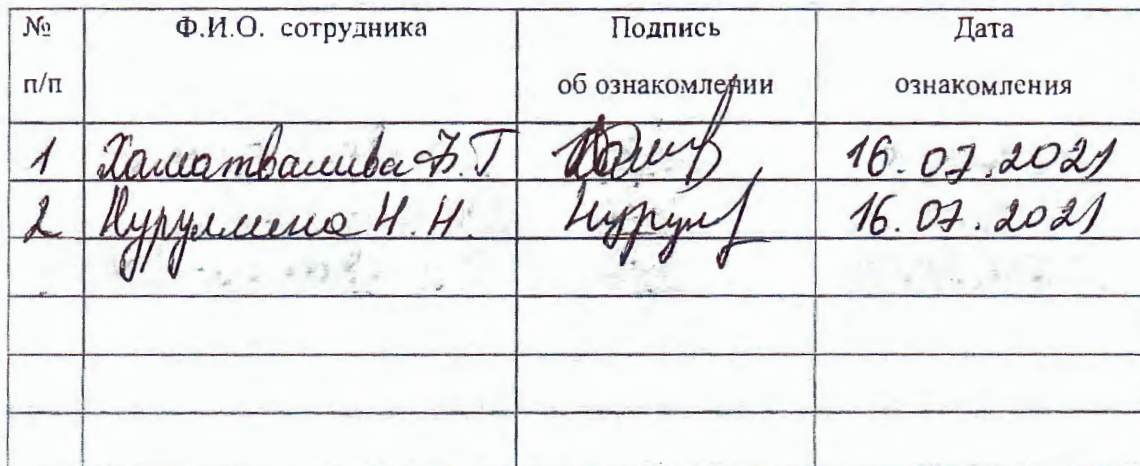 № Ф.И.О. сотрудника Подпись Дата
п/п об ознакомлении ознакомления
1 Хаматвалива Ф.Г 16.07.2021
2 Нурулмина Н.Н. Нурул 16.07.2021